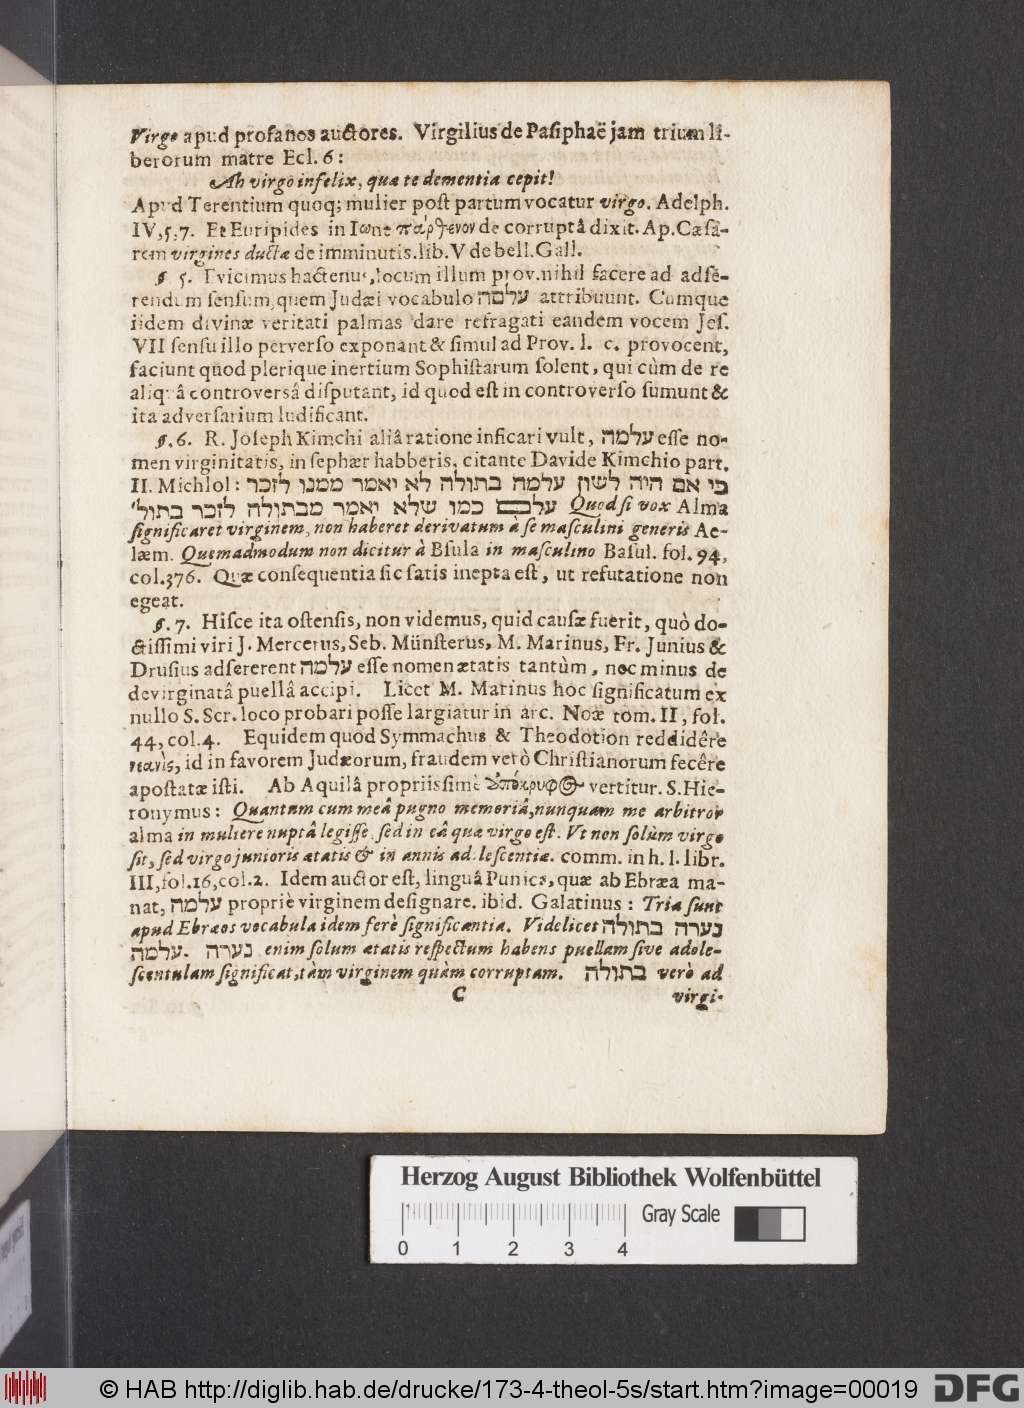 Virgo apud profanos auctores. Virgilius de Pasiphaë jam trium li-
berorum matre Ecl. 6:
Ah virgo infelix, quæ te dementia cepit!
Apud Terentium quoq; mulier post partum vocatur virgo. Adelph.
IV, 5, 7. Et Euripides in Iωne πάρθενον de corruptâ dixit. Ap. Cæsa-
rem virgines ductæ de imminutis. lib. V de bell. Gall.
§. 5. Evicimus hactenus, locum illum prov. nihil facere ad adse-
rendum sensum, quem Judæi vocabulo עלמה attribuunt. Cumque
iidem divinæ veritati palmas dare refragati eandem vocem Jes.
VII sensu illo perverso exponant & simul ad Prov. l. c. provocent,
faciunt quod plerique inertium Sophistarum solent, qui cùm de re
aliquâ controversâ disputant, id quod est in controverso sumunt &
ita adversarium ludificant.
§. 6. R. Joseph Kimchi aliâ ratione inficari vult, עלמה esse no-
men virginitatis, in sephær habberis, citante Davide Kimchio part.
II. Michlol: כי אם היה לשון עלמה בתולה לא יאמר ממנו לזכר
עלם כמו שלא יאמר מבתולה לזכר בתול׳ Quod si vox Alma
significaret virginem, non haberet derivatum à se masculini generis Ae-
læm. Quemadmodum non dicitur à Bsula in masculino Basul. fol. 94,
col. 376. Quæ consequentia sic satis inepta est, ut refutatione non
egeat.
§. 7. Hisce ita ostensis, non videmus, quid causæ fuerit, quò do-
ctissimi viri J. Mercerus, Seb. Münsterus, M. Marinus, Fr. Junius &
Drusius adsererent עלמה esse nomen ætatis tantùm, nec minus de
devirginatâ puellâ accipi. Licet M. Marinus hoc significatum ex
nullo S. Scr. loco probari posse largiatur in arc. Noæ tom. II, fol.
44, col. 4. Equidem quod Symmachus & Theodotion reddidêre
νεανὶς, id in favorem Judæorum, fraudem verò Christianorum fecêre
apostatæ isti. Ab Aquilâ propriissimè vertitur. S. Hie-
ronymus: Quantum cum meâ pugno memoriâ, nunquam me arbitror
alma in muliere nuptâ legisse, sed in eâ quæ virgo est. Vt non solùm virgo
sit, sed virgo junioris ætatis & in annis adolescentiæ. comm. in h. l. libr.
III, fol. 16, col. 2. Idem auctor est, linguâ Punica, quæ ab Ebræa ma-
nat, עלמה propriè virginem designare. ibid. Galatinus: Tria sunt
apud Ebræos vocabula idem ferè significantia. Videlicet נערה בתולה
עלמה. נערה enim solum ætatis respectum habens puellam sive adole-
scentulam significat, tàm virginem quàm corruptam. בתולה verò ad
C virgi-
Herzog August Bibliothek Wolfenbüttel
Gray Scale
0 1 2 3 4
© HAB http://diglib.hab.de/drucke/173-4-theol-5s/start.htm?image=00019
DFG